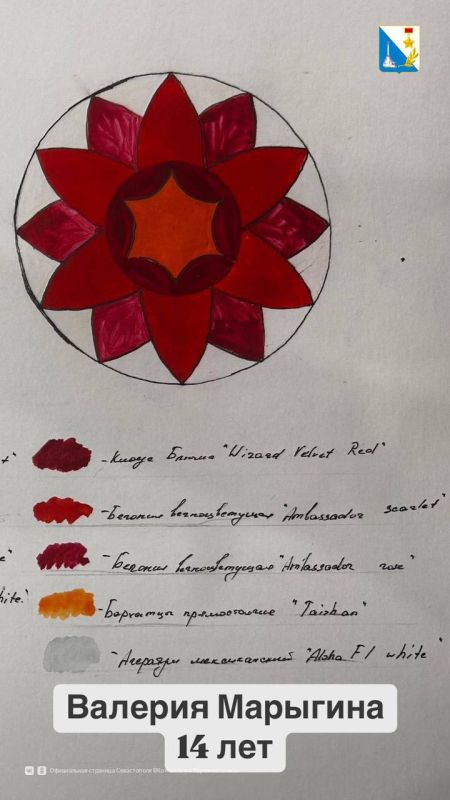 t" - Кливе Блюма "Wizard Velvet Red"
- Бегония вечноцветущая "Ambassador scarlet"
e" - Бегония вечноцветущая "Ambassador rose"
hite." - Бархатцы прямостоячие "Taishan"
- Агератум мексиканский "Aloha F1 white"
Валерия Марыгина
14 лет
Официальная страница Севастополя